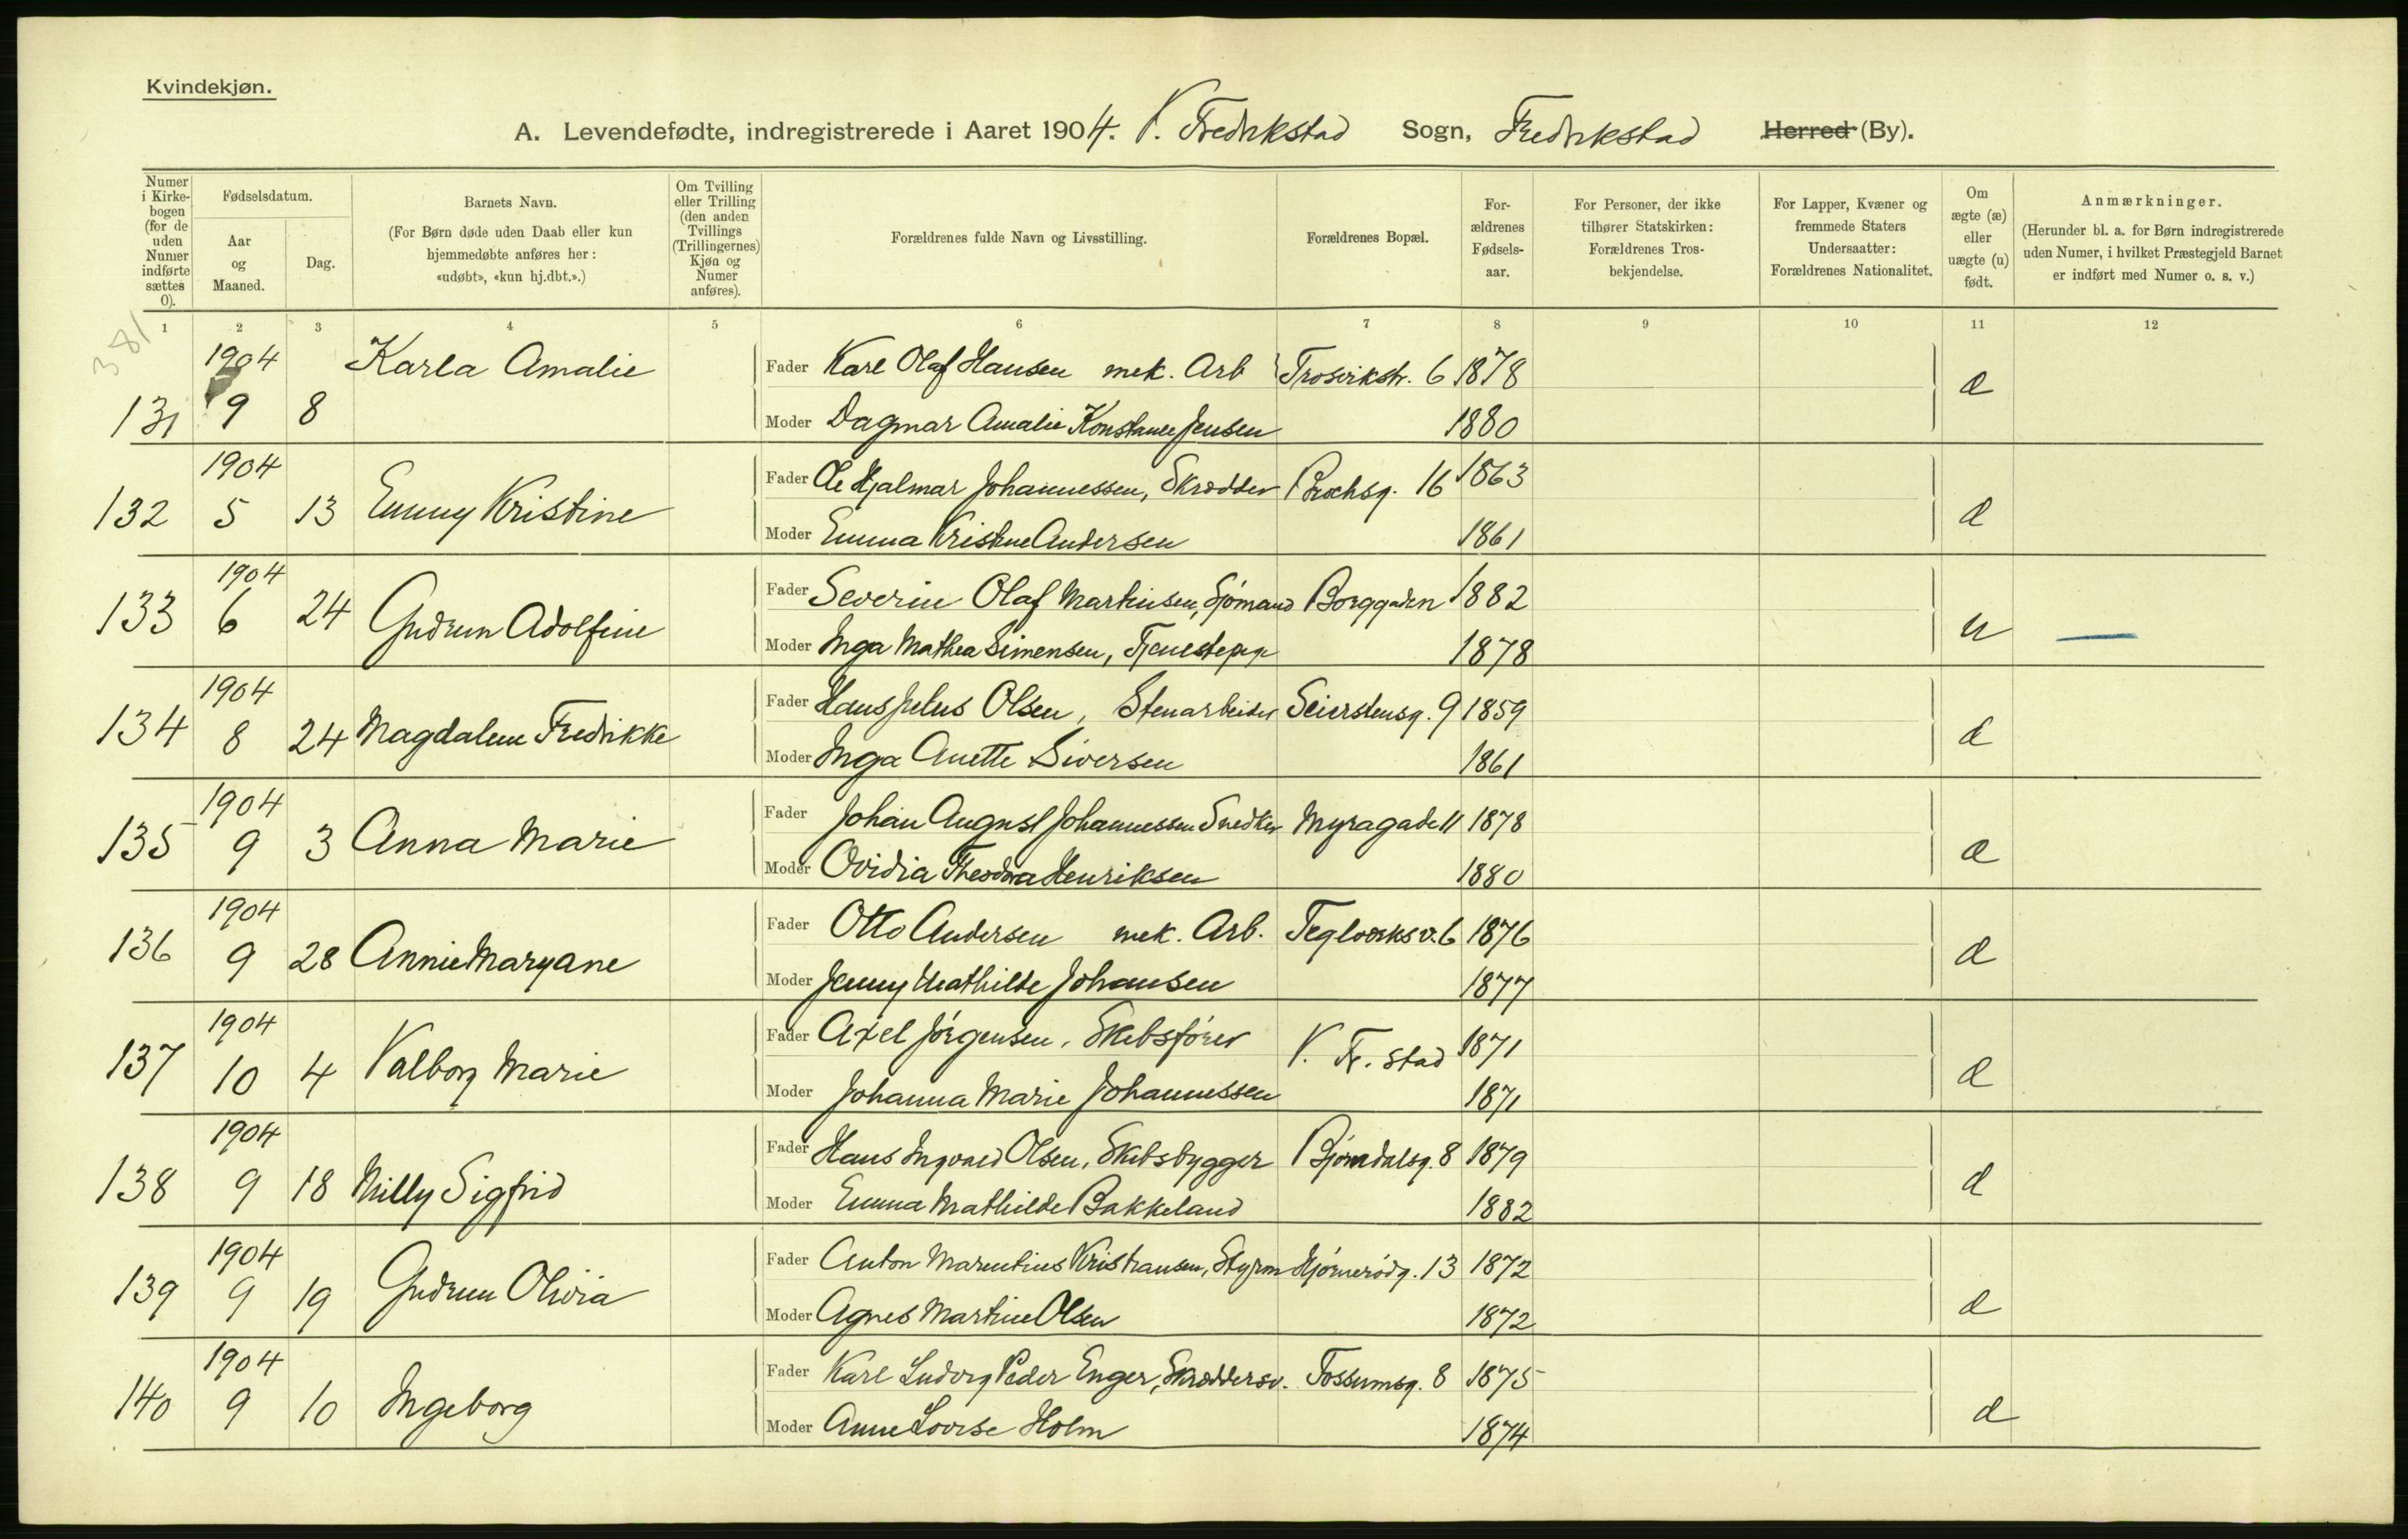 Kvindekjøn.
A. Levendefødte, indregistrerede i Aaret 1904. V. Fredrikstad Sogn, Fredrikstad Herred (By).
Numer i Kirkebogen (for de uden Numer indførte sættes 0).
Fødselsdatum.
Aar og Maaned.
Dag.
Barnets Navn.
(For Børn døde uden Daab eller kun hjemmedøbte anføres her: «udøbt», «kun hj.dbt.».)
Om Tvilling eller Trilling (den anden Tvillings (Trillingernes) Kjøn og Numer anføres).
Forældrenes fulde Navn og Livsstilling.
Forældrenes Bopæl.
Forældrenes Fødselsaar.
For Personer, der ikke tilhører Statskirken: Forældrenes Trosbekjendelse.
For Lapper, Kvæner og fremmede Staters Undersaatter: Forældrenes Nationalitet.
Om ægte (æ) eller uægte (u) født.
Anmærkninger.
(Herunder bl. a. for Børn indregistrerede uden Numer, i hvilket Præstegjeld Barnet er indført med Numer o. s. v.)
1 2 3 4 5 6 7 8 9 10 11 12
381
1904 Karla Amalie Fader Karl Olaf Hansen mek. Arb Trosvikstr. 6 1878 æ
131 9 8 Moder Dagmar Amalie Konstance Jensen 1880
1904 Fader Ole Hjalmar Johannessen, Skrædder Brochsg. 16 1863
132 5 13 Emmy Kristine Moder Emma Kristine Andersen 1861 æ
1904 Fader Severin Olaf Martinsen, Sjömand Borggaden 1882
133 6 24 Gudrun Adolfine Moder Inga Mathea Simensen, Tjenestepige 1878 u
1904 Fader Hans Julius Olsen, Stenarbeider Seierstensg. 9 1859
134 8 24 Magdalene Fredrikke Moder Inga Anette Siversen 1861 æ
1904 Fader Johan August Johannessen Snedker Myragade 11 1878
135 9 3 Anna Marie Moder Ovidia Theodora Henriksen 1880 æ
1904 Fader Otto Andersen mek. Arb. Teglværksv. 6 1876
136 9 28 Annie Maryane Moder Jenny Mathilde Johansen 1877 æ
1904 Fader Axel Jörgensen, Skibsförer V. Fr. stad 1871
137 10 4 Valborg Marie Moder Johanna Marie Johannessen 1871 æ
1904 Fader Hans Ingvald Olsen, Skibsbygger Bjørndalsg. 8 1879
138 9 18 Milly Sigfrid Moder Emma Mathilde Bakkeland 1882 æ
1904 Fader Anton Marentius Kristiansen, Styrm 13 1872
139 9 19 Gudrun Olivia Moder Agnes Martine Olsen 1872 æ
1904 Fader Karl Ludvig Peder Enger, Skræddersv. Fossumsg. 8 1875
140 9 10 Ingeborg Moder Anne Lovise Holm 1874 æ